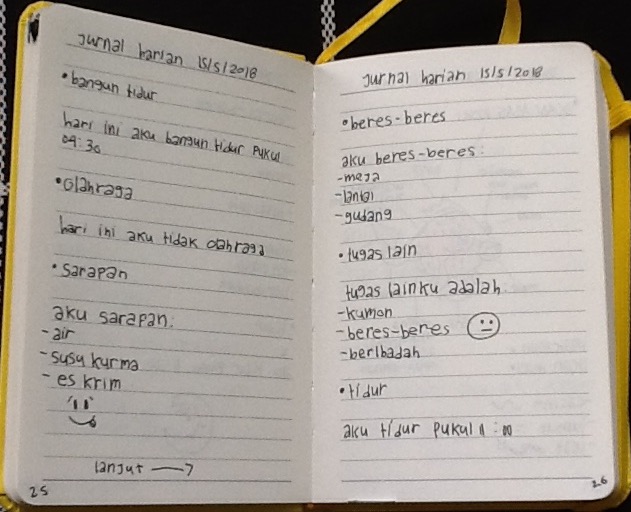 Jurnal harian 15/5/2018
•bangun tidur
hari ini aku bangun tidur pukul
04:30
•Olahraga
hari ini aku tidak olahraga
•Sarapan
aku sarapan:
-air
-susu kurma
-es krim
lanjut →
25
Jurnal harian 15/5/2018
•beres-beres
aku beres-beres:
-meja
-lantai
-gudang
•tugas lain
tugas lainku adalah
-kumon
-beres-beres
-beribadah
•tidur
aku tidur pukul
26